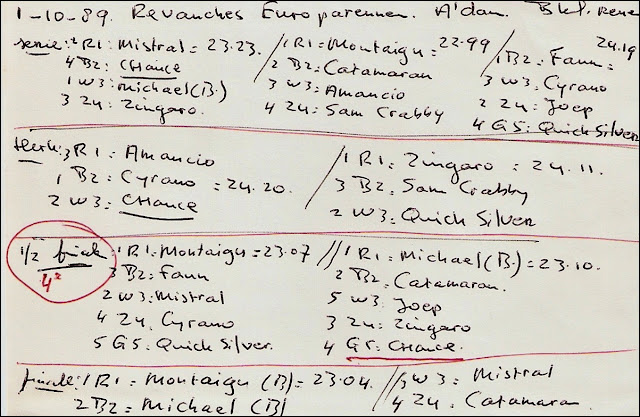 1-10-89. Revanches Europarennen. A'dam. Bkl. Rene
serie: 2 R1: Mistral = 23.23. / 1 R1 = Montaigu = 22.99 / 24.19
4 B2: Chance 2 B2: Catamaran 1 B2: Fann =
1 W3: Michael (B.) 3 W3: Amancio 3 W3: Cyrano
3 Z4: Zingaro. 4 Z4: Sam Crabby 2 Z4: Joep
4 G5: Quick Silver
Herk: 3 R1 = Amancio / 1 R1 = Zingaro = 24.11.
1 B2: Cyrano = 24.20. 3 B2: Sam Crabby
2 W3: Chance 2 W3: Quick Silver
1/2 finale: 1 R1: Montaigu = 23.07 // 1 R1: Michael (B.) = 23.10.
4² 3 B2: Fann 2 B2: Catamaran.
2 W3: Mistral 5 W3: Joep
4 Z4: Cyrano 3 Z4: Zingaro
5 G5: Quick Silver. 4 G5: Chance.
finale: 1 R1 = Montaigu (B) = 23.04. // 3 W3 = Mistral
2 B2 = Michael (B) 4 Z4: Catamaran.